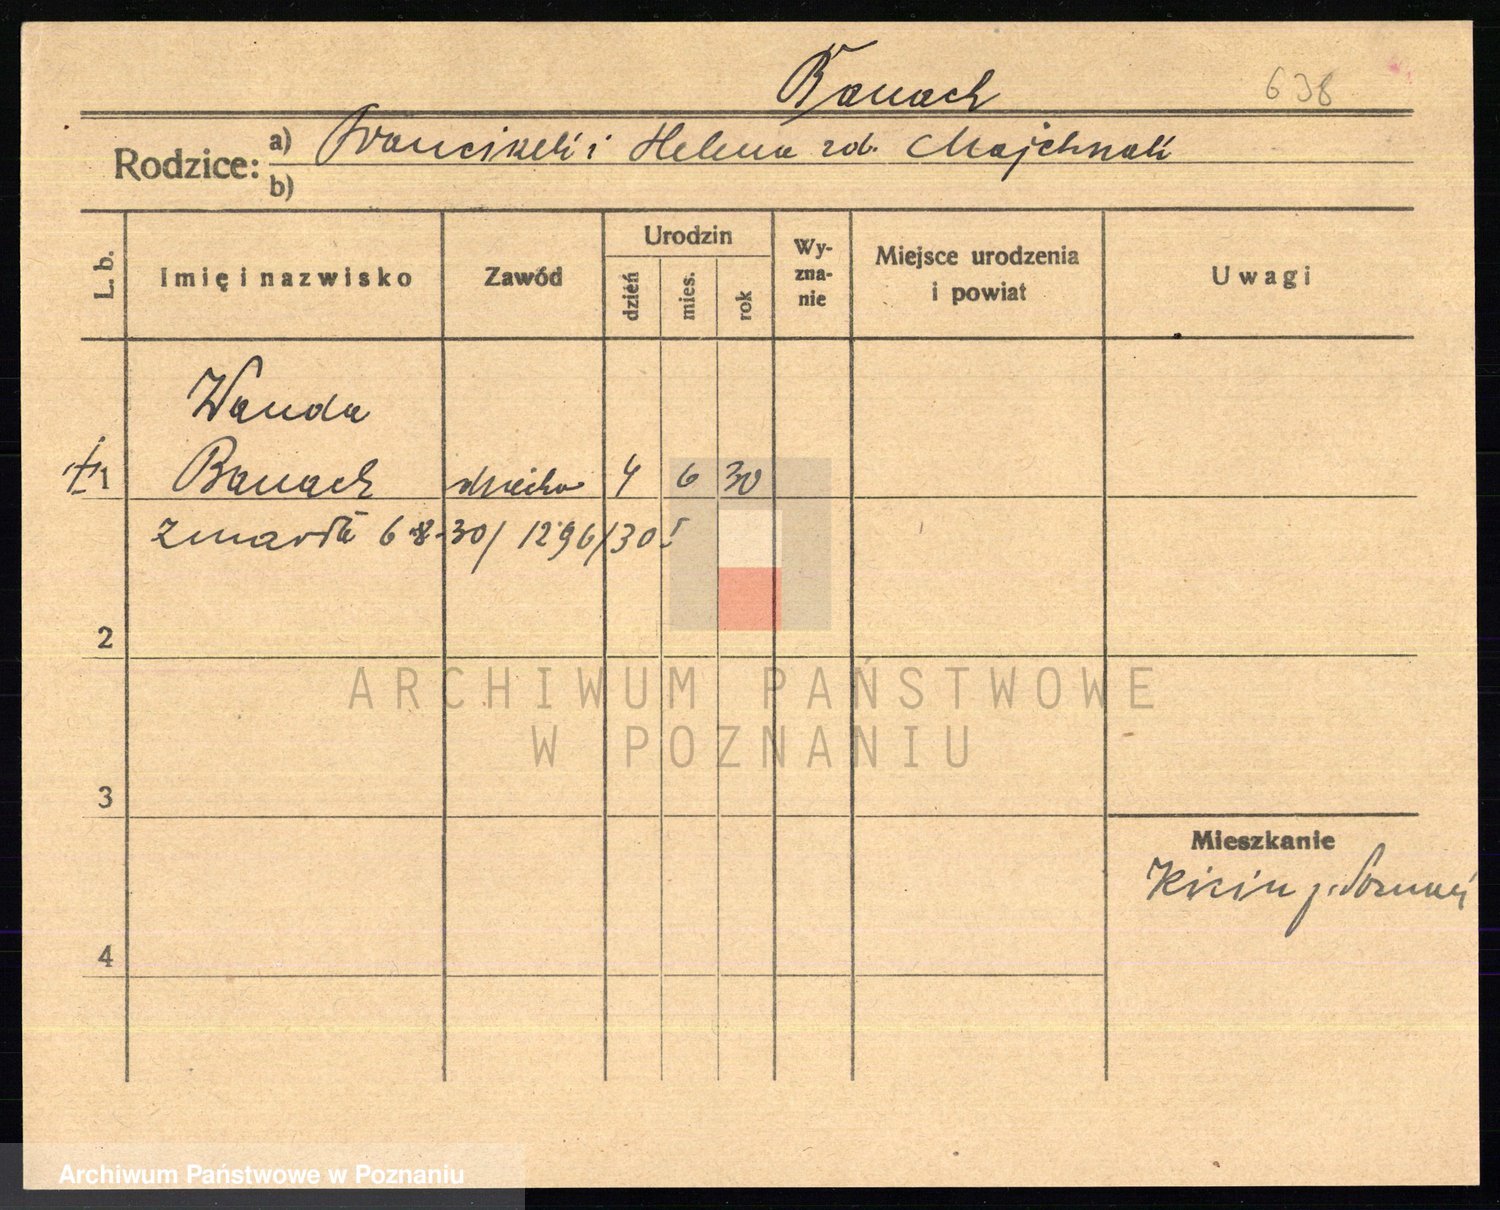 Banach 638
Rodzice: a) Franciszek i Helena zd. Majchrzak
b)
L. b. Imię i nazwisko Zawód Urodzin dzień mies. rok Wy-zna-nie Miejsce urodzenia i powiat Uwagi
Wanda
1 Banach dziecko 4 6 30
zmarła 6.8.30/ 1296/30!
2
ARCHIWUM PAŃSTWOWE
W POZNANIU
3
Mieszkanie
Kicin p. Poznań
4
Archiwum Państwowe w Poznaniu